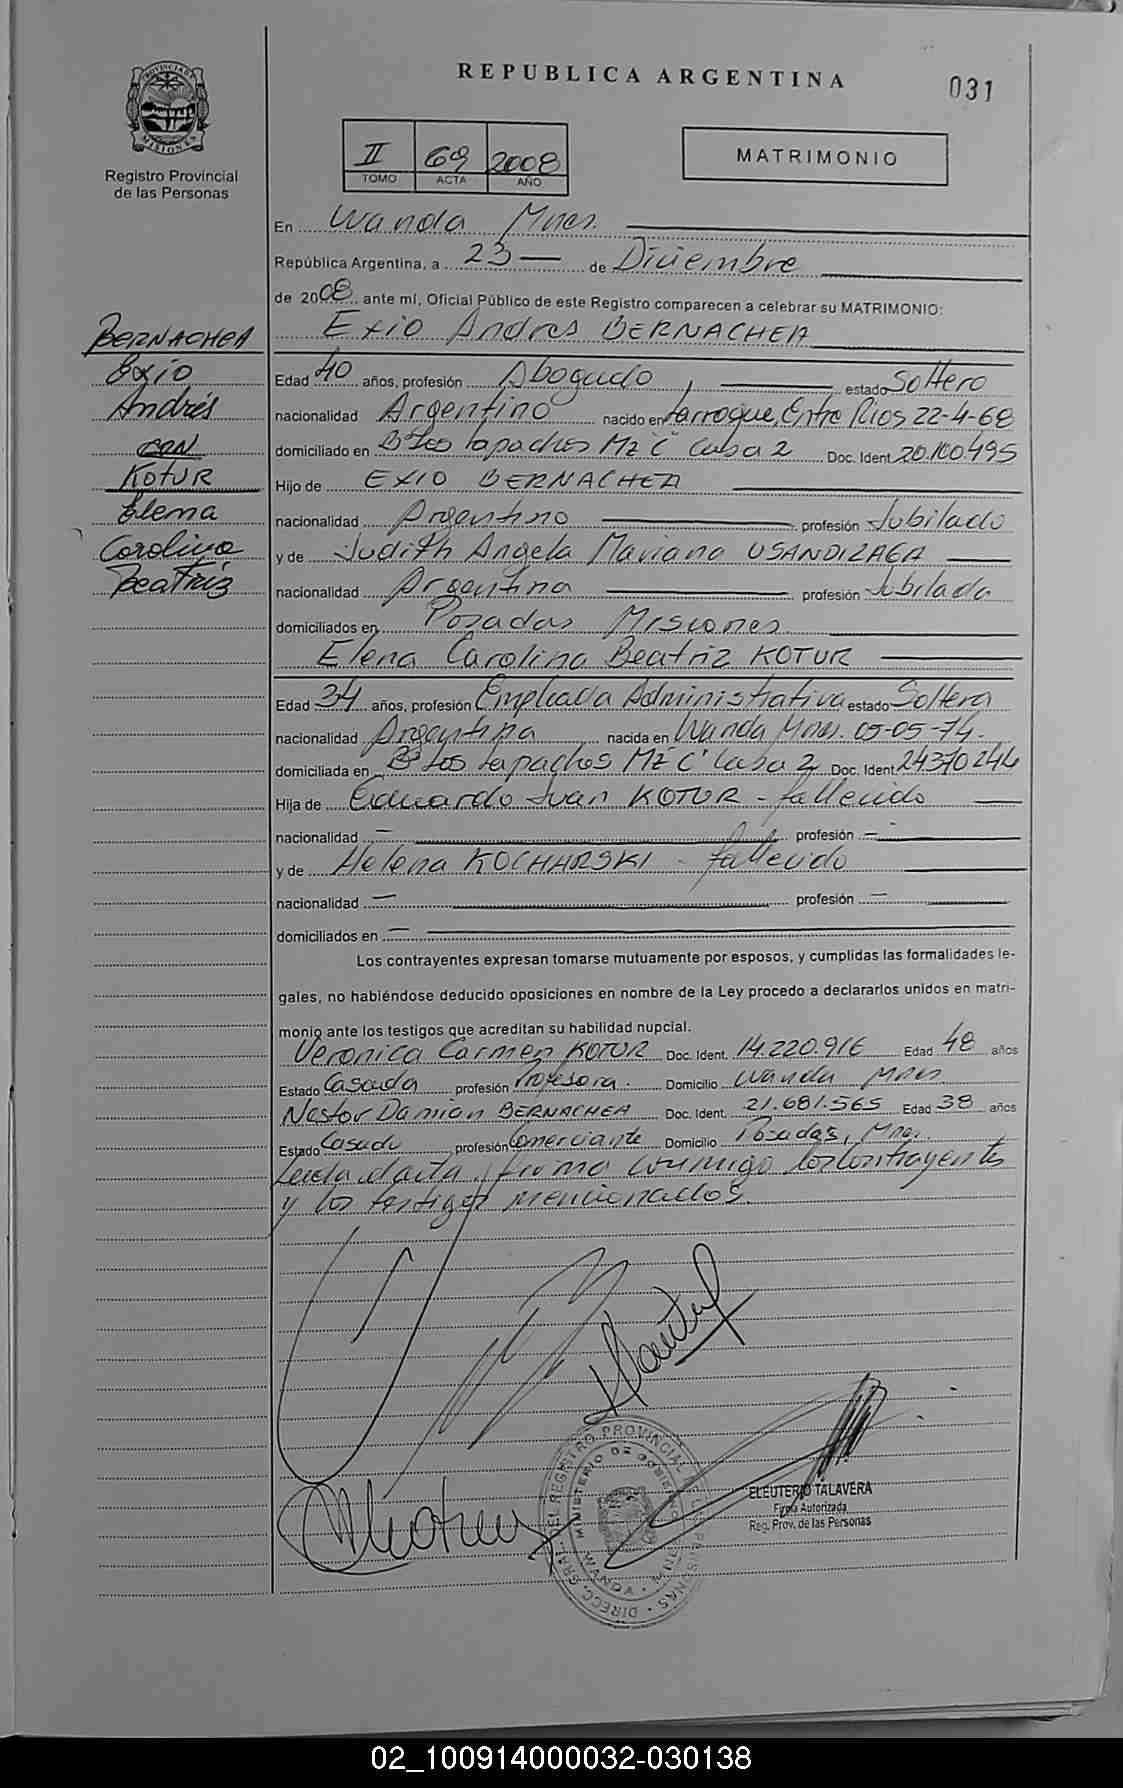 REPUBLICA ARGENTINA
031
PROVINCIA DE
MISIONES
Registro Provincial
de las Personas
II 69 2008
TOMO ACTA AÑO
MATRIMONIO
En Wanda Mnes.
República Argentina, a 23 de Diciembre
de 2008 ante mí, Oficial Público de este Registro comparecen a celebrar su MATRIMONIO:
Exio Andres BERNACHEA
BERNACHEA
Exio
Andrés
CON
KOTUR
Elena
Carolina
Beatriz
Edad 40 años, profesión Abogado, estado Soltero
nacionalidad Argentino nacido en Larroque, Entre Rios 22-4-68
domiciliado en B° Los Lapachos Mz "C" Casa 2 Doc. Ident. 20.100.495
Hijo de EXIO BERNACHEA
nacionalidad Argentino profesión Jubilado
y de Judith Angela Mariana USANDIZAGA
nacionalidad Argentina profesión Jubilada
domiciliados en Posadas Misiones
Elena Carolina Beatriz KOTUR
Edad 34 años, profesión Empleada Administrativa estado Soltera
nacionalidad Argentina nacida en Wanda Mnes. 05-05-74.
domiciliada en B° Los Lapachos Mz "C" Casa 2 Doc. Ident. 24370244
Hija de Eduardo Juan KOTUR - fallecido
nacionalidad — profesión —
y de Helena KOCHARSKI - fallecido
nacionalidad — profesión —
domiciliados en —
Los contrayentes expresan tomarse mutuamente por esposos, y cumplidas las formalidades le-
gales, no habiéndose deducido oposiciones en nombre de la Ley procedo a declararlos unidos en matri-
monio ante los testigos que acreditan su habilidad nupcial.
Veronica Carmen KOTUR Doc. Ident. 14.220.916 Edad 48 años
Estado Casada profesión Profesora. Domicilio Wanda Mnes
Nestor Damian BERNACHEA Doc. Ident. 21.681.565 Edad 38 años
Estado Casado profesión Comerciante Domicilio Posadas, Mnes.
Leida el acta, firma conmigo los contrayentes
y los testigos mencionados.
DIRECC. GRAL. DEL REGISTRO PROVINCIAL DE LAS PERSONAS
MINISTERIO DE GOBIERNO
WANDA
ELEUTERIO TALAVERA
Firma Autorizada
Reg. Prov. de las Personas
02_100914000032-030138